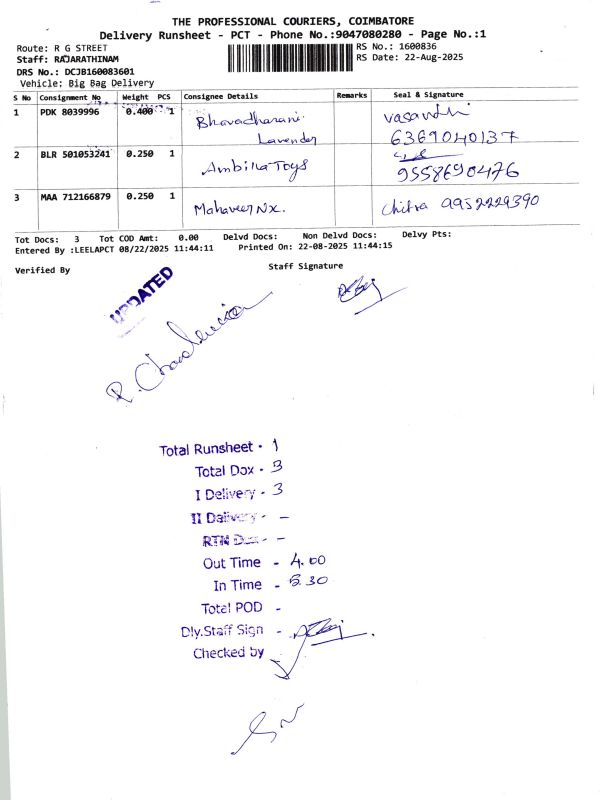 THE PROFESSIONAL COURIERS, COIMBATORE
Delivery Runsheet - PCT - Phone No.:9047080280 - Page No.:1
Route: R G STREET
RS No.: 1600836
Staff: RAJARATHINAM
RS Date: 22-Aug-2025
DRS No.: DCJB160083601
Vehicle: Big Bag Delivery
S No Consignment No Weight PCS Consignee Details Remarks Seal & Signature
1 PDK 8039996 0.400 1 Bhavadharani vasanthi
Lavender 6369040137
2 BLR 501053241 0.250 1 Ambika Toys
9558690476
3 MAA 712166879 0.250 1 Mahaveer Nx. Chitra 9952229390
Tot Docs: 3 Tot COD Amt: 0.00 Delvd Docs: Non Delvd Docs: Delvy Pts:
Entered By :LEELAPCT 08/22/2025 11:44:11 Printed On: 22-08-2025 11:44:15
Verified By Staff Signature
UPDATED
Total Runsheet - 1
Total Dox - 3
I Delivery - 3
II Delivery - -
RTN Dox - -
Out Time - 4.00
In Time - 5.30
Total POD -
Dly.Staff Sign -
Checked by